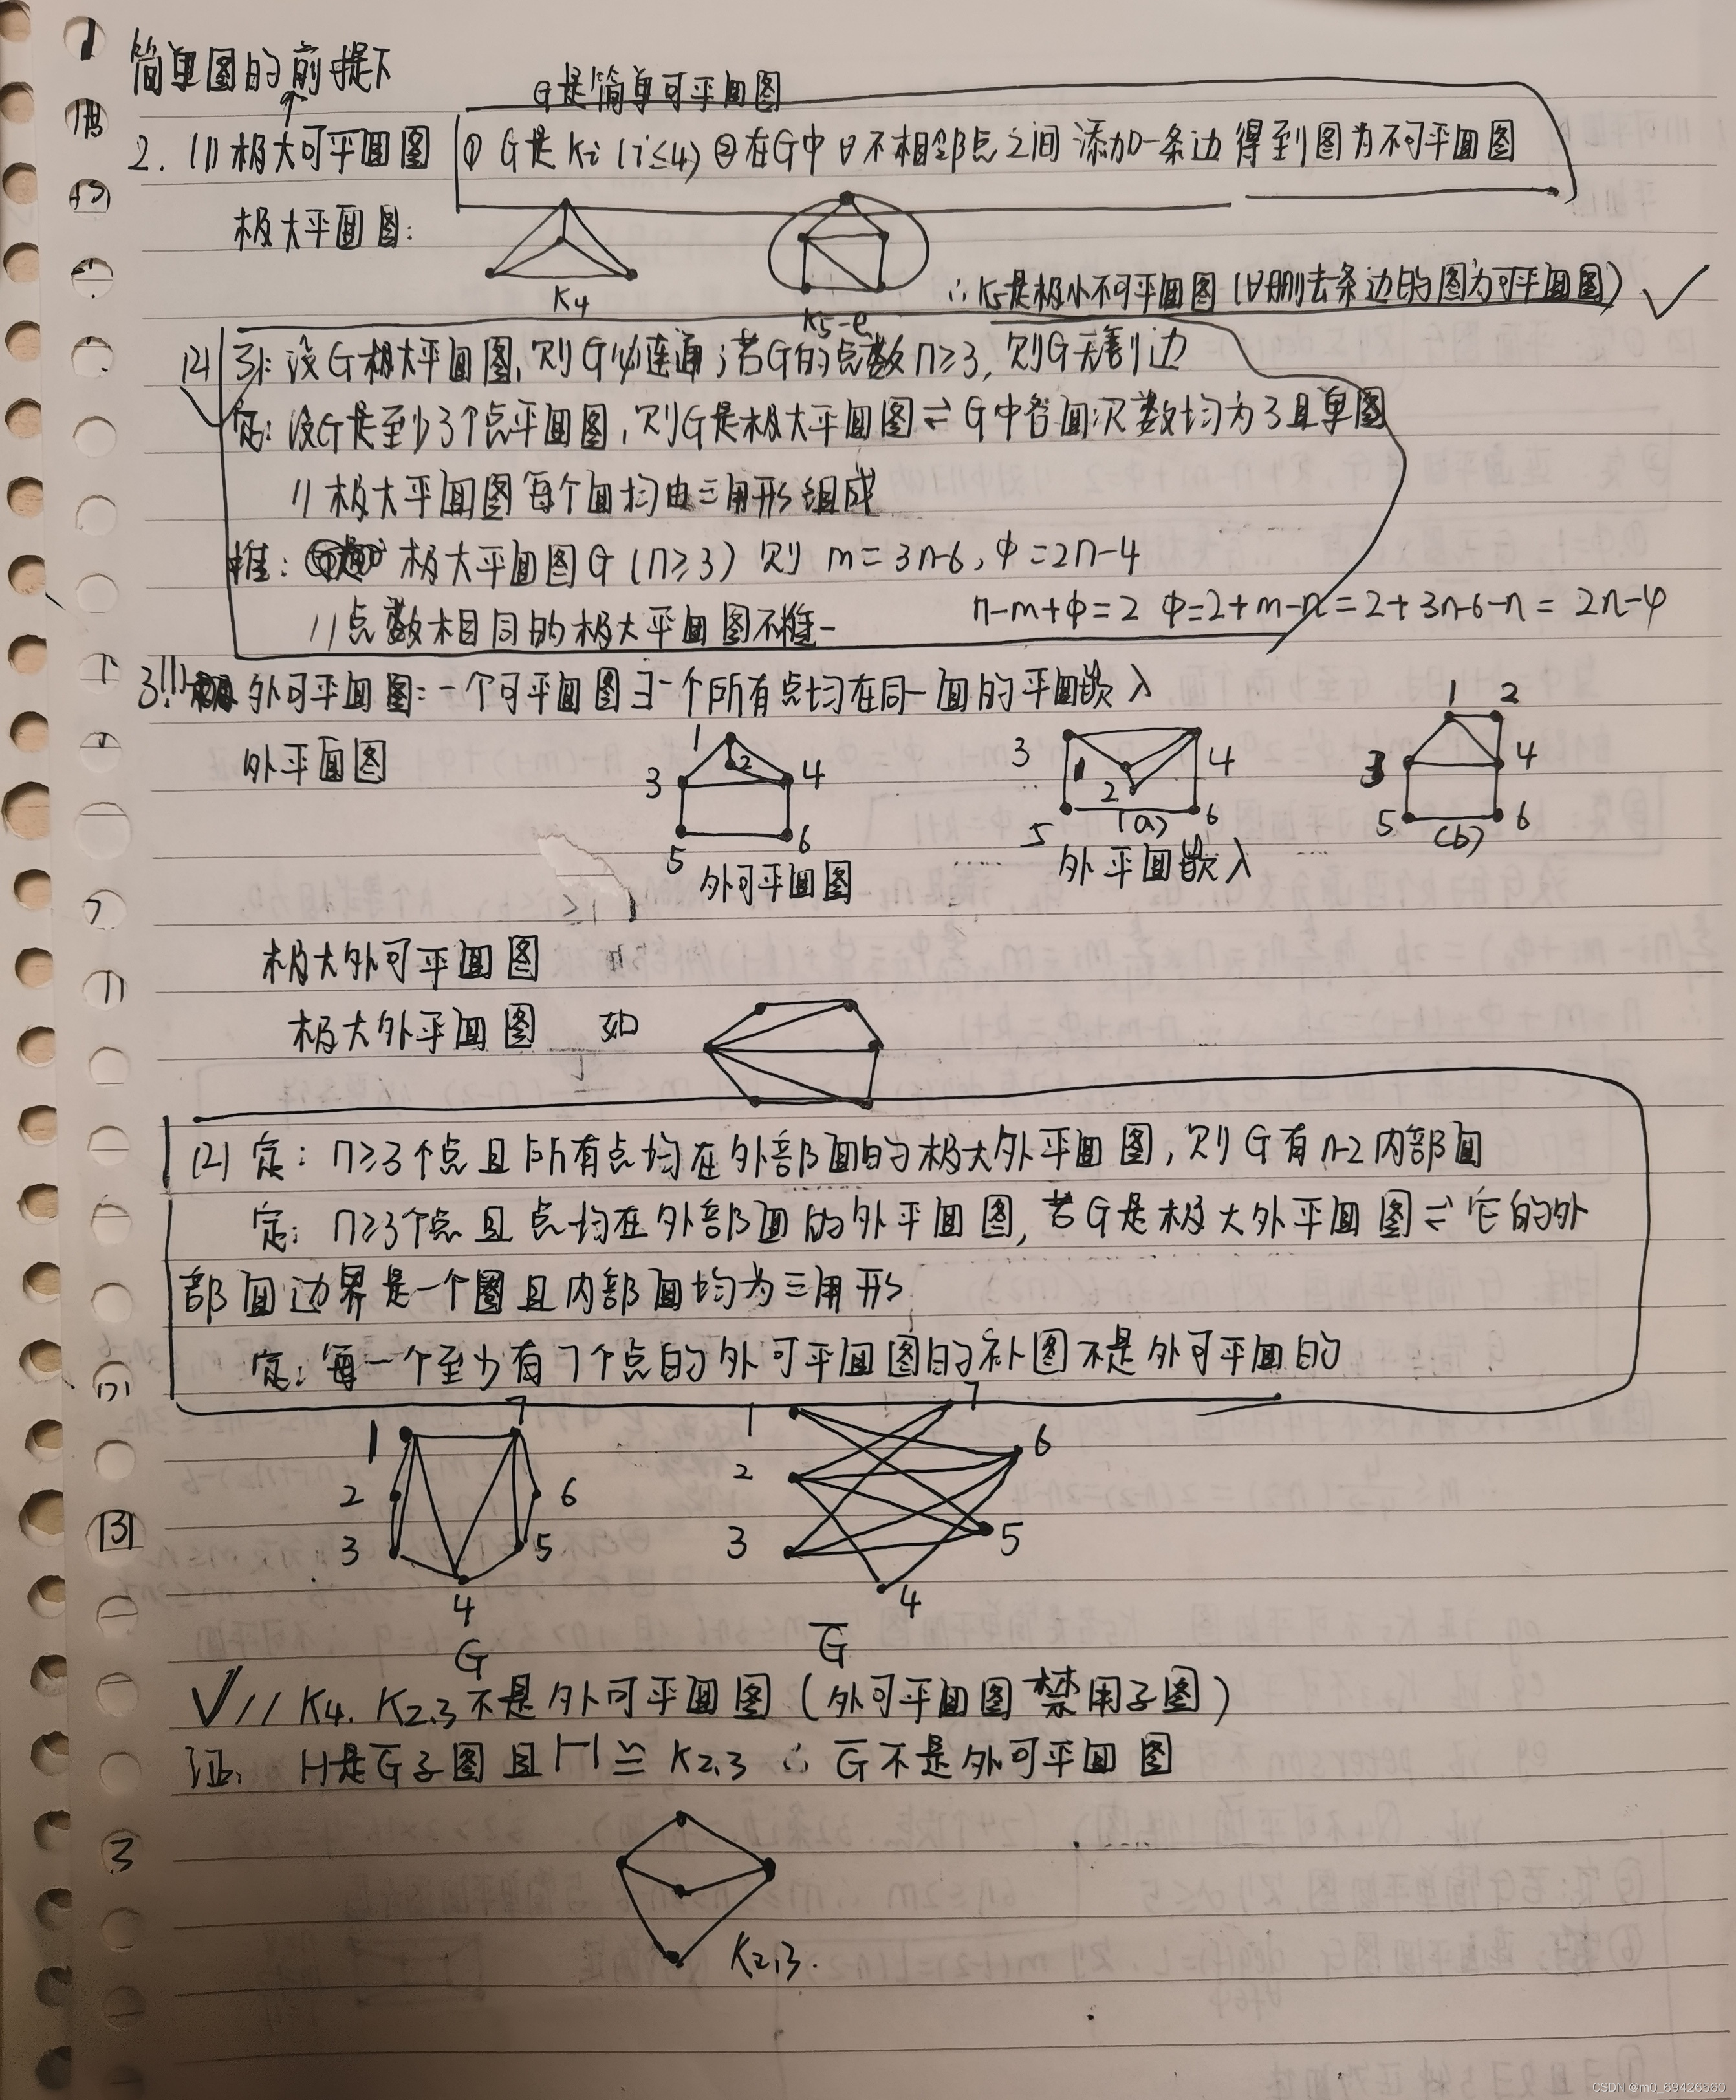 简单图的前提下
G是简单可平面图
2. (1) 极大可平面图 ① G是Ki (i≤4) ②在G中∀不相邻点之间添加一条边得到图为不可平面图
极大平面图:
K4
K5-e
∴K5是极小不可平面图(∀删去条边的图为可平面图) ✓
(2) 引: 设G极大平面图, 则G必连通; 若G的点数n≥3, 则G无割边
定: 设G是至少3个点平面图, 则G是极大平面图⇌G中各面次数均为3且单图
// 极大平面图每个面均由三角形组成
推: 极大平面图G (n≥3) 则 m=3n-6, φ=2n-4
n-m+φ=2 φ=2+m-n=2+3n-6-n=2n-4
// 点数相同的极大平面图不惟一
3. (1) 外可平面图: 一个可平面图∃一个所有点均在同一面的平面嵌入
外平面图
1 2 3 4 5 6
外可平面图
3 1 4 2 5 6
(a)
外平面嵌入
1 2 3 4 5 6
(b)
极大外可平面图
极大外平面图 如
(2) 定: n≥3个点且所有点均在外部面的极大外平面图, 则G有n-2内部面
定: n≥3个点且点均在外部面的外平面图, 若G是极大外平面图⇌它的外
部面边界是一个圈且内部面均为三角形
定: 每一个至少有7个点的外可平面图的补图不是外可平面的
1 7 2 6 3 5 4
G
1 7 2 6 3 5 4
G̅
✓// K4. K2,3不是外可平面图 (外可平面图禁用子图)
证: H是G̅子图且H≅K2,3 ∴ G̅不是外可平面图
K2,3.
CSDN @m0_69426560